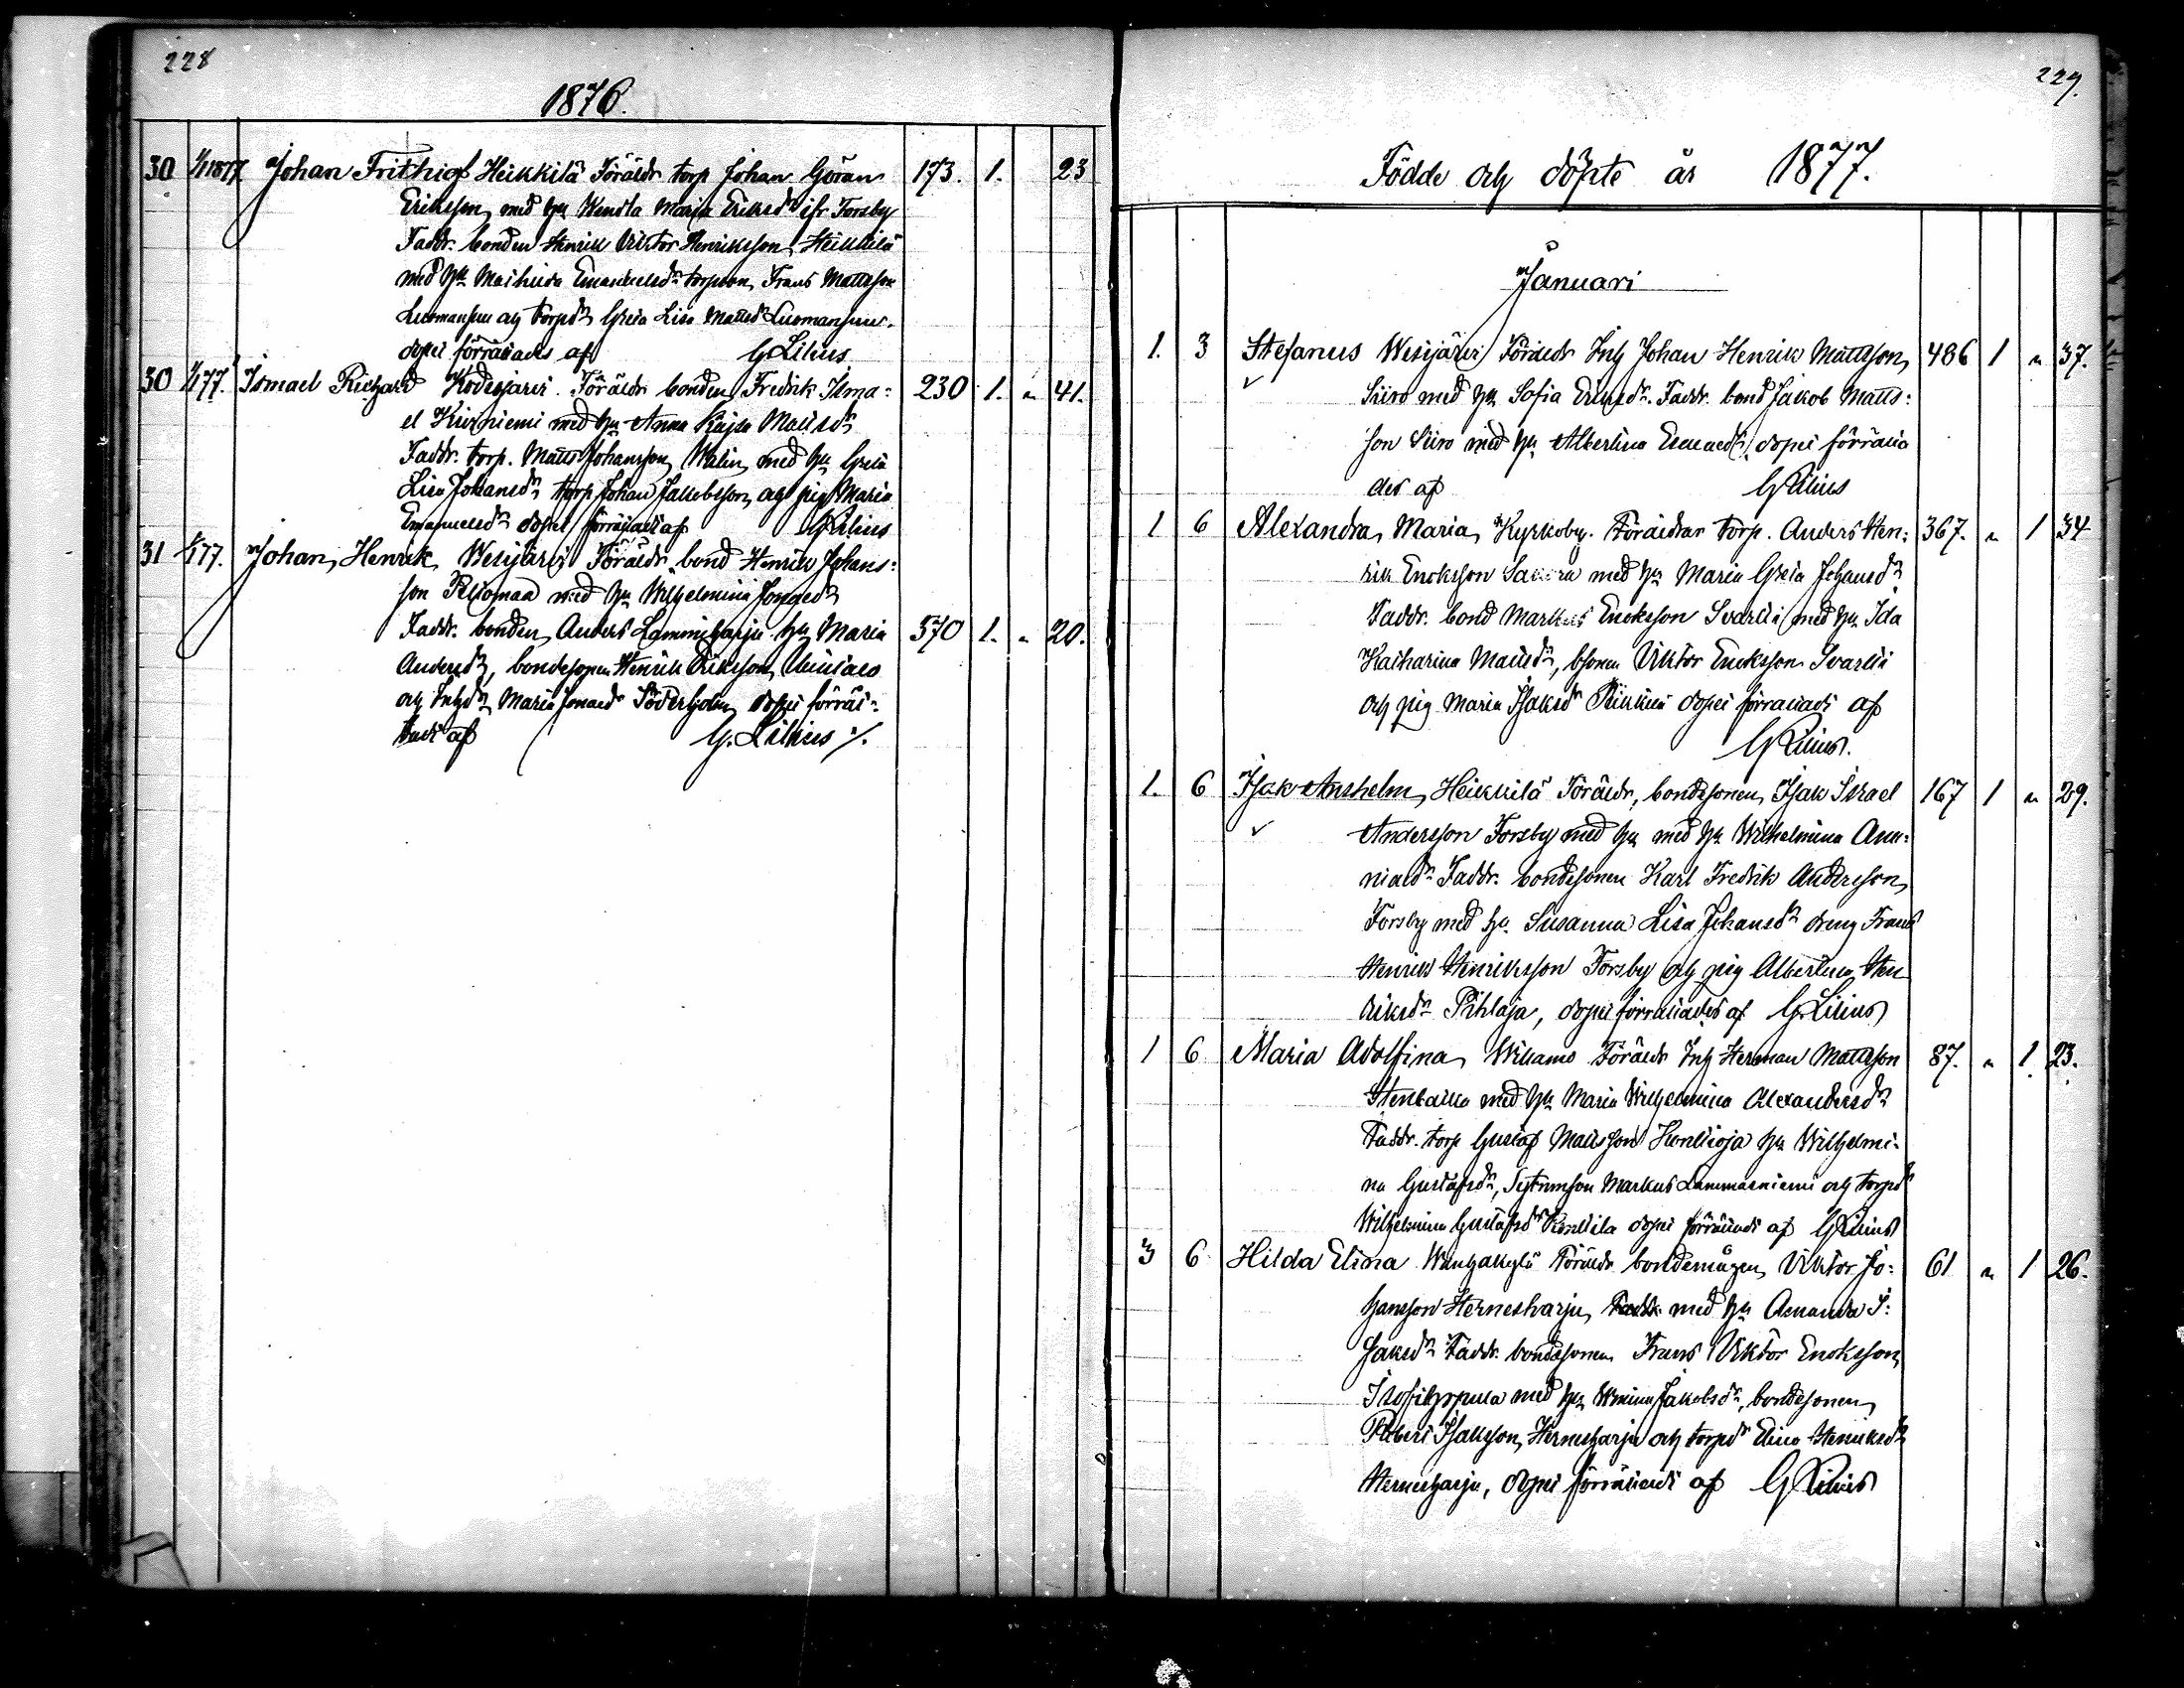 228
1876.
30 1/1 1877 Johan Frithiof Heikkilä Föräldr torp Johan Göran 173. 1. 23
Eriksson med hu Wendla Maria Eriksdr ifr Forsby
Faddr. bonden Henrik Viktor Henriksson Heikkilä
med hu Mathilda Emanuelsdr torpson Frans Mattsson
Luomansuu och torpdr Greta Lisa Mattsdr Luomansuu.
dopet förrättades af G Lilius
30 1/1 77. Ismael Richard Kodesjärvi. Föräldr bonden Fredrik Isma= 230 1. " 41.
el Kiviniemi med hu Anna Kajsa Mattsdr
Faddr. torp. Matts Johansson Walin med hu Greta
Lisa Johansdr torp Johan Jakobsson och pig Maria
Emanuelsdr dopet förrättadt af G Lilius
31 1/1 77. Johan Henrik Wesijärvi Föräldr bond Henrik Johans=
son Risomaa med hu Wilhelmina Jonaedr
Faddr. bonden Anders Lammiharju hu Maria 370 1. " 20.
Andersdr, bondesonen Henrik Eriksson
och Inhdr Maria Jonaedr Söderholm dopet förrät=
tadt af G. Lilius ./.
229.
Födde och döpte år 1877.
Januari
1. 3 Stefanus Wesijärvi Föräldr Inh Johan Henrik Mattsson 486 1 " 37.
Siiro med hu Sofia Eriksdr. Faddr. bond Jakob Matts=
son Siiro med hu Albertina dopet förrätta
des af G Lilius
1 6 Alexandra Maria Kyrkoby. Föräldrar torp. Anders Hen= 367. " 1 34
rik Enoksson med hu Maria Greta Johansdr
Faddr. bond Markus Enoksson Svartti med hu Ida
Katharina Mattsdr, bsonen Viktor Enoksson Svartti
och pig Maria Isaksdr dopet förrättadt af
G Lilius.
1. 6 Isak Anshelm Heikkilä Föräldr, bondesonen Isak Israel 167 1 " 29.
Andersson Forsby med hu med hu Wilhelmina Ana=
niaedr Faddr. bondesonen Karl Fredrik Andersson
Forsby med hu Susanna Lisa Johansdr dreng Frans
Henrik Henriksson Forsby och pig Albertina Hen
riksdr Pihlaja, dopet förrättades af G. Lilius
1 6 Maria Adolfina Wiliamo Föräldr Inh Herman Mattsson 87. " 1 23.
Stenbacka med hu Maria Wilhelmina Alexandersdr
Faddr. torp Gustaf Mattsson hu Wilhelmi=
na Gustafsdr, Markus Lammasniemi och torpdr
Wilhelmina Gustafsdr dopet förrättadt af G Lilius
3 6 Hilda Elina Wanhakylä Föräldr bondemågen Viktor Jo= 61 " 1 26.
hansson Hernesharju Faddr. med hu Amanda I=
saksdr Faddr. bondesonen Frans Viktor Enoksson
med hu Jakobsdr, bondesonen
Robert Isaksson Hernesharju och torpdr Elina Henriksdr
Hernesharju, dopet förrättadt af G Lilius